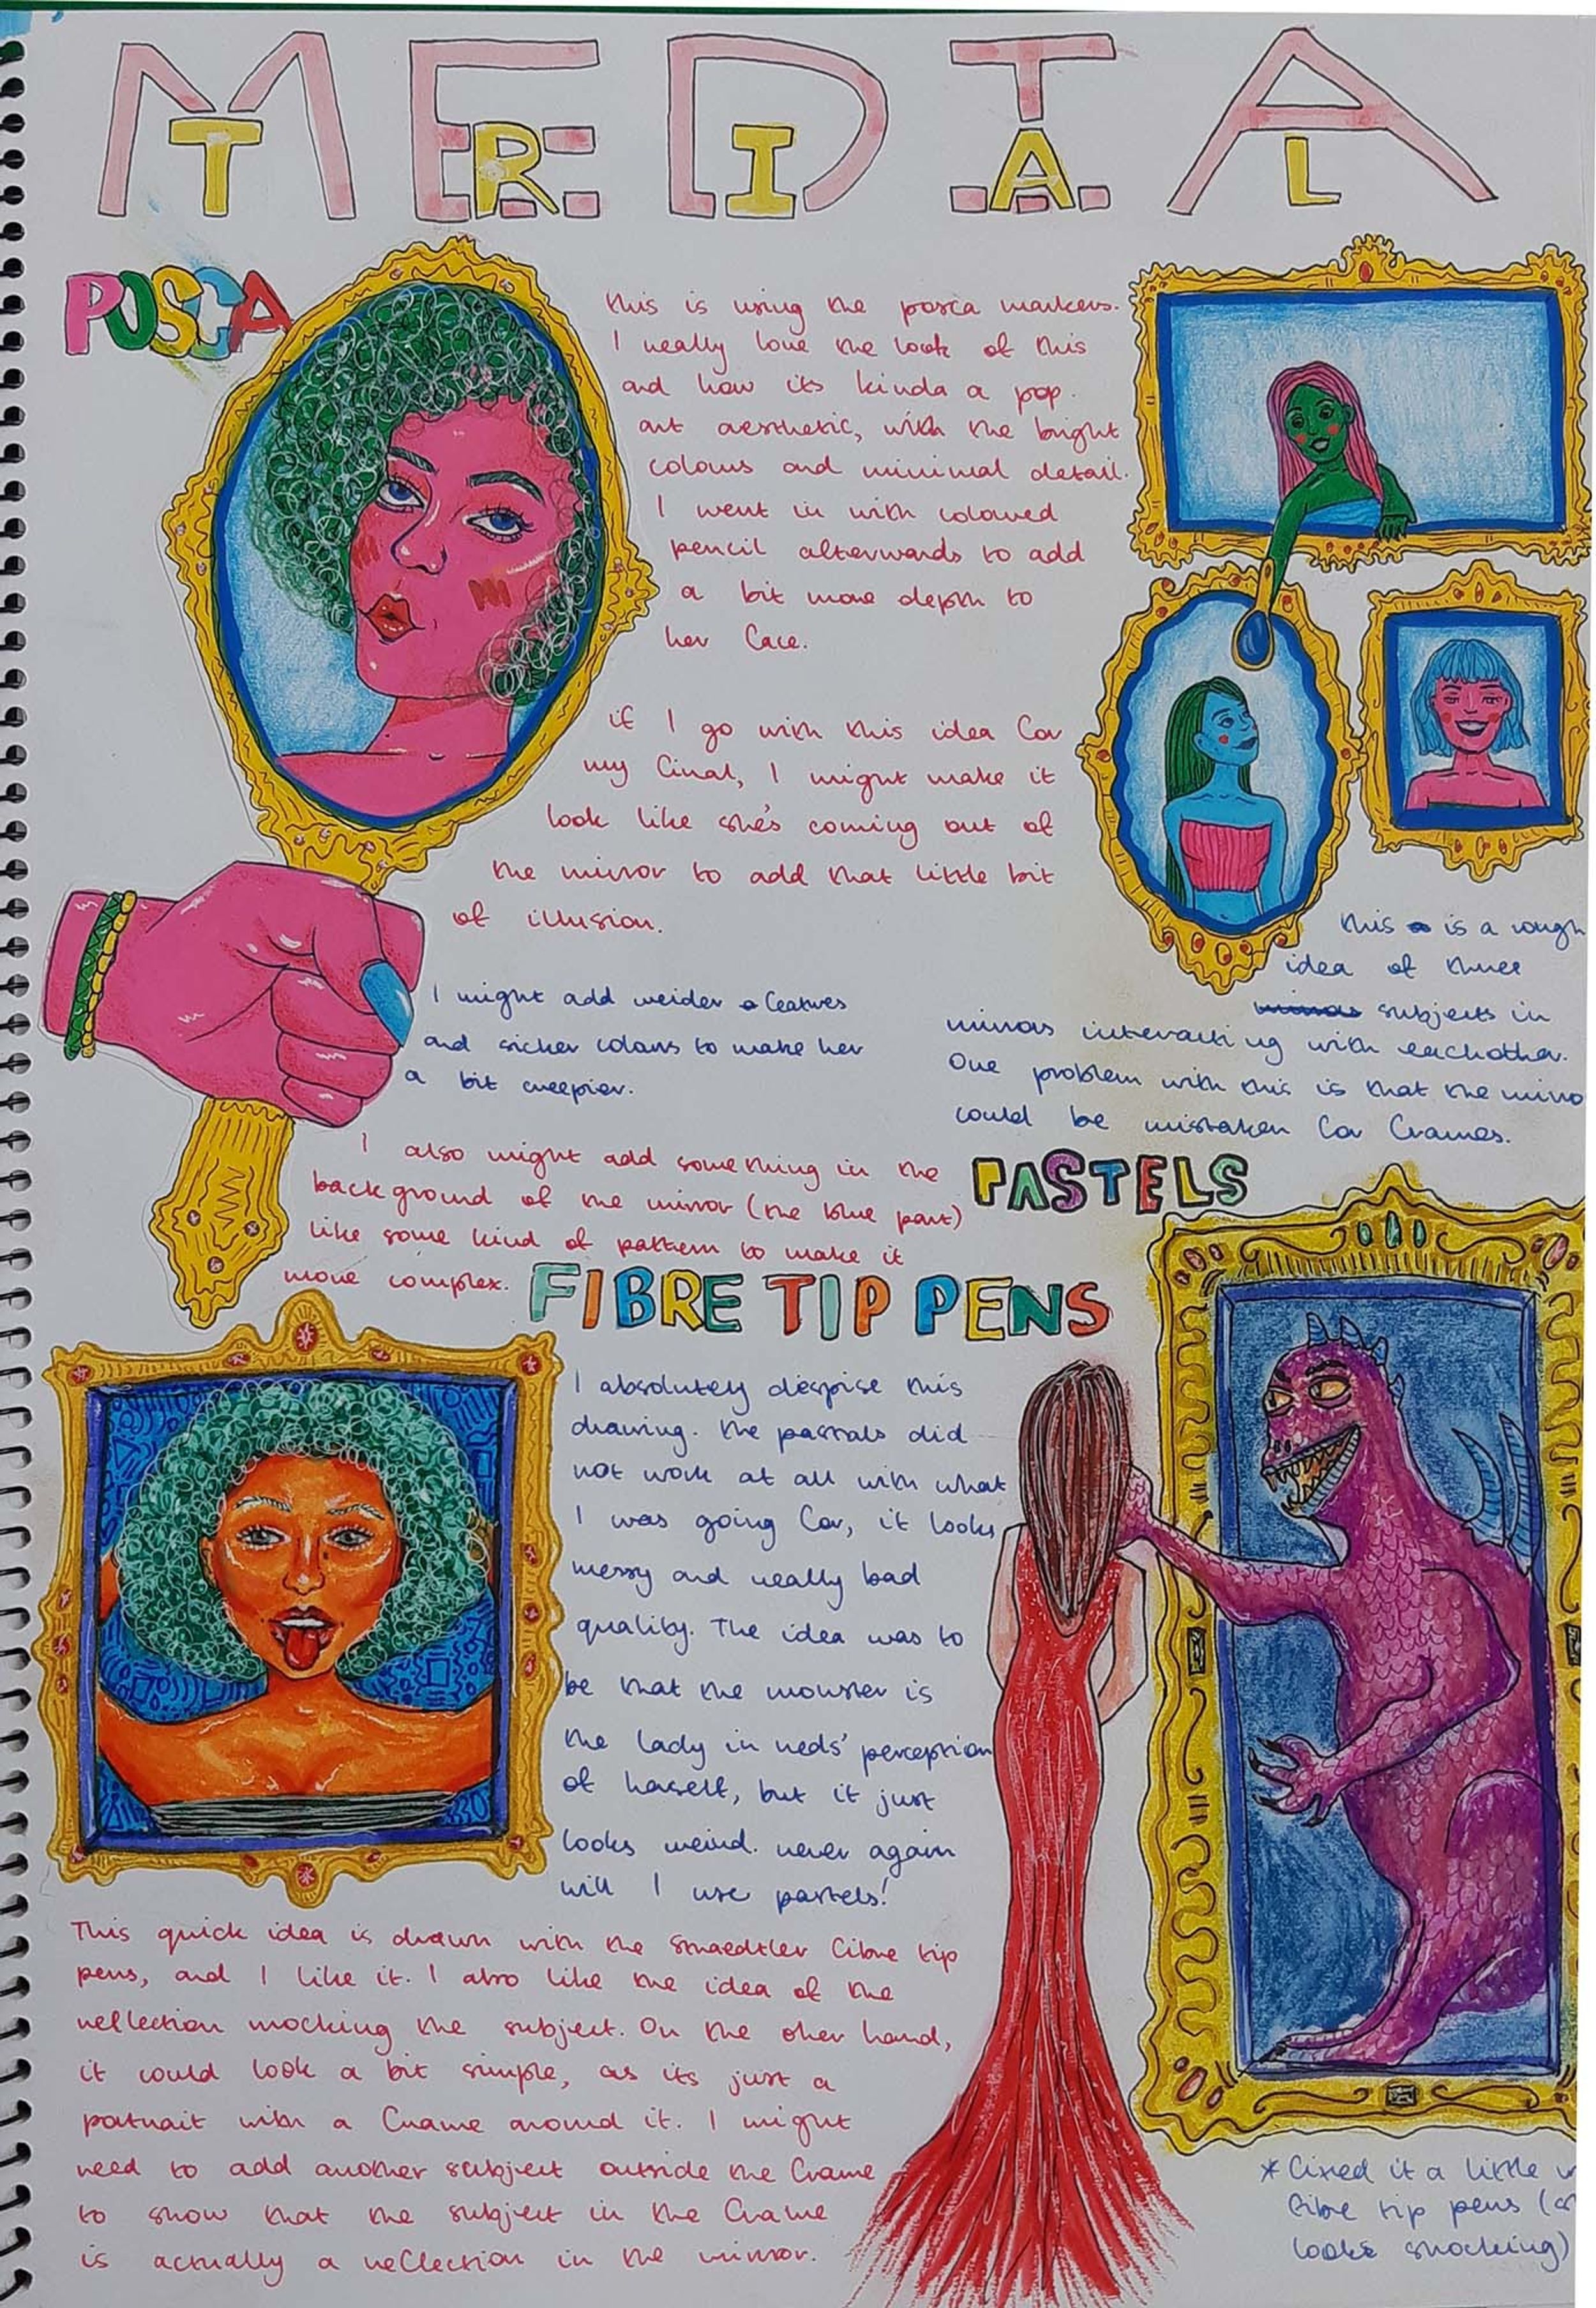 MEDIA
TRIAL
POSCA
this is using the posca markers.
I really love the look of this
and how its kinda a pop
art aesthetic, with the bright
colours and minimal detail.
I went in with coloured
pencil afterwards to add
a bit more depth to
her face.
if I go with this idea for
my final, I might make it
look like she's coming out of
the mirror to add that little bit
of illusion.
I might add weider features
and sicker colours to make her
a bit creepier.
I also might add something in the
background of the mirror (the blue part)
like some kind of pattern to make it
more complex.
this is a rough
idea of three
mirrors subjects in
mirrors interacting with eachother.
One problem with this is that the mirro
could be mistaken for frames.
PASTELS
FIBRE TIP PENS
I absolutely despise this
drawing. the pastals did
not work at all with what
I was going for, it looks
messy and really bad
quality. The idea was to
be that the monster is
the lady in reds' perception
of herself, but it just
looks weird. never again
will I use pastels!
This quick idea is drawn with the Staedtler fibre tip
pens, and I like it. I also like the idea of the
reflection mocking the subject. On the other hand,
it could look a bit simple, as its just a
portrait with a frame around it. I might
need to add another subject outside the frame
to show that the subject in the frame
is actually a reflection in the mirror.
* fixed it a little
fibre tip pens (
looks shocking)